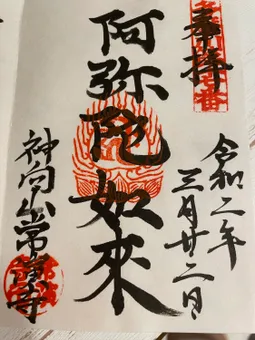 奉拝
令和二年
三月廿二日
阿弥陀如來
神向山常宣寺